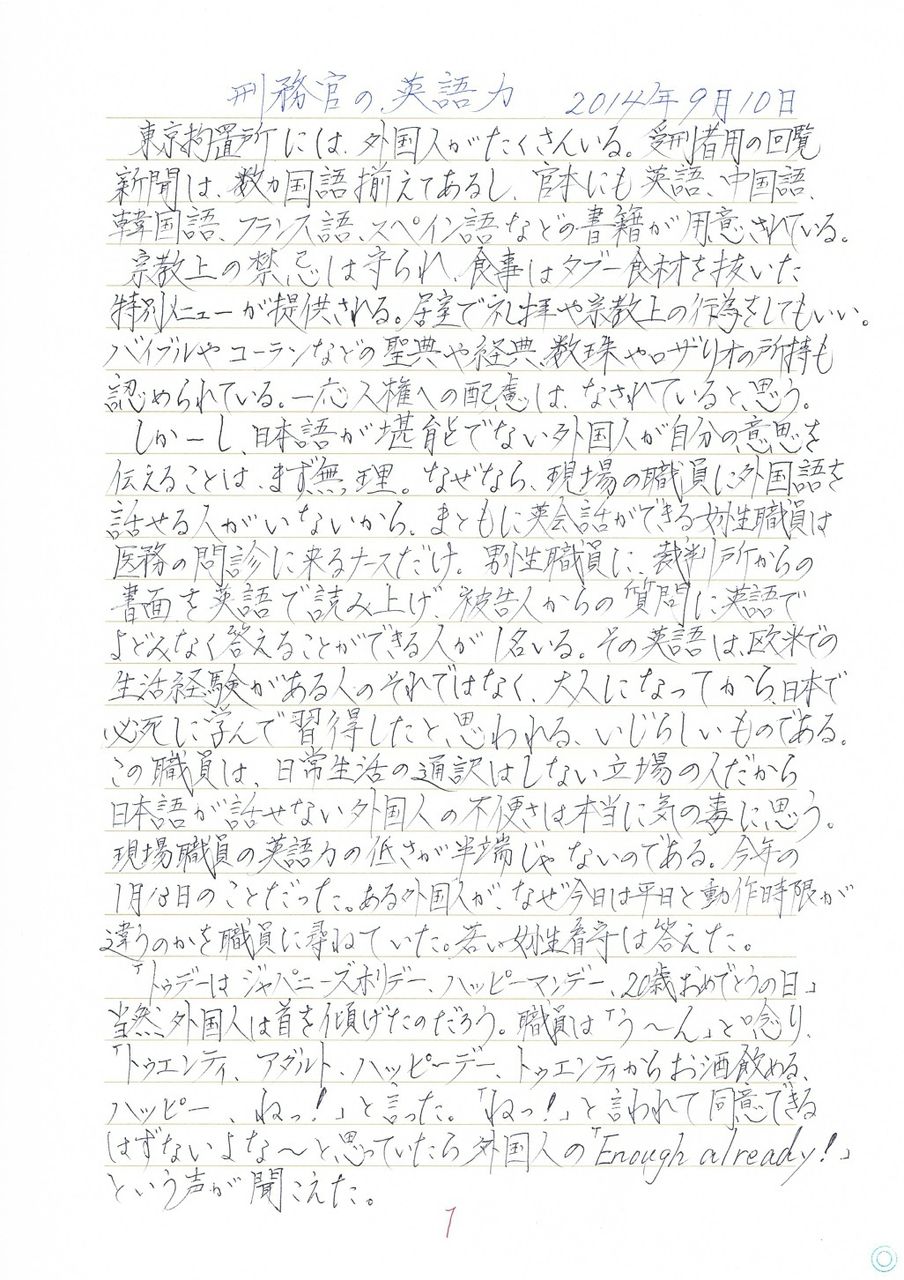 刑務官の英語力 2014年9月10日
東京拘置所には、外国人がたくさんいる。受刑者用の回覧
新聞は、数カ国語揃えてあるし、官本にも英語、中国語、
韓国語、フランス語、スペイン語などの書籍が用意されている。
宗教上の禁忌は守られ、食事はタブー食材を抜いた
特別メニューが提供される。居室で礼拝や宗教上の行為をしてもいい。
バイブルやコーランなどの聖典や経典、数珠やロザリオの所持も
認められている。一応人権への配慮は、なされていると思う。
しかーし、日本語が堪能とでない外国人が自分の意思を
伝えることは、まず無理。なぜなら、現場の職員に外国語を
話せる人がいないから。まともに英会話ができる女性職員は
医務の問診に来るナースだけ。男性職員に、裁判所からの
書面を英語で読み上げ、被告人からの質問に英語で
よどみなく答えることができる人が1名いる。その英語は、欧米での
生活経験がある人のそれではなく、大人になってから、日本で
必死に学んで習得したと思われる、いじらしいものである。
この職員は、日常生活の通訳はしない立場の人だから
日本語が話せない外国人の不便さは本当に気の毒に思う。
現場職員の英語力の低さが半端じゃないのである。今年の
1月13日のことだった。ある外国人が、なぜ今日は平日と動作時限が
違うのかを職員に尋ねていた。若い女性看守は答えた。
「トゥデーはジャパニーズホリデー、ハッピーマンデー、20歳おめでとうの日」
当然、外国人は首を傾げたのだろう。職員は「う〜ん」と唸り、
「トゥエンティ、アダルト、ハッピーデー、トゥエンティからお酒飲める、
ハッピー、ねっ!」と言った。「ねっ!」と言われて同意できる
はずないよな〜と思っていたら外国人の「Enough already!」
という声が聞こえた。
1